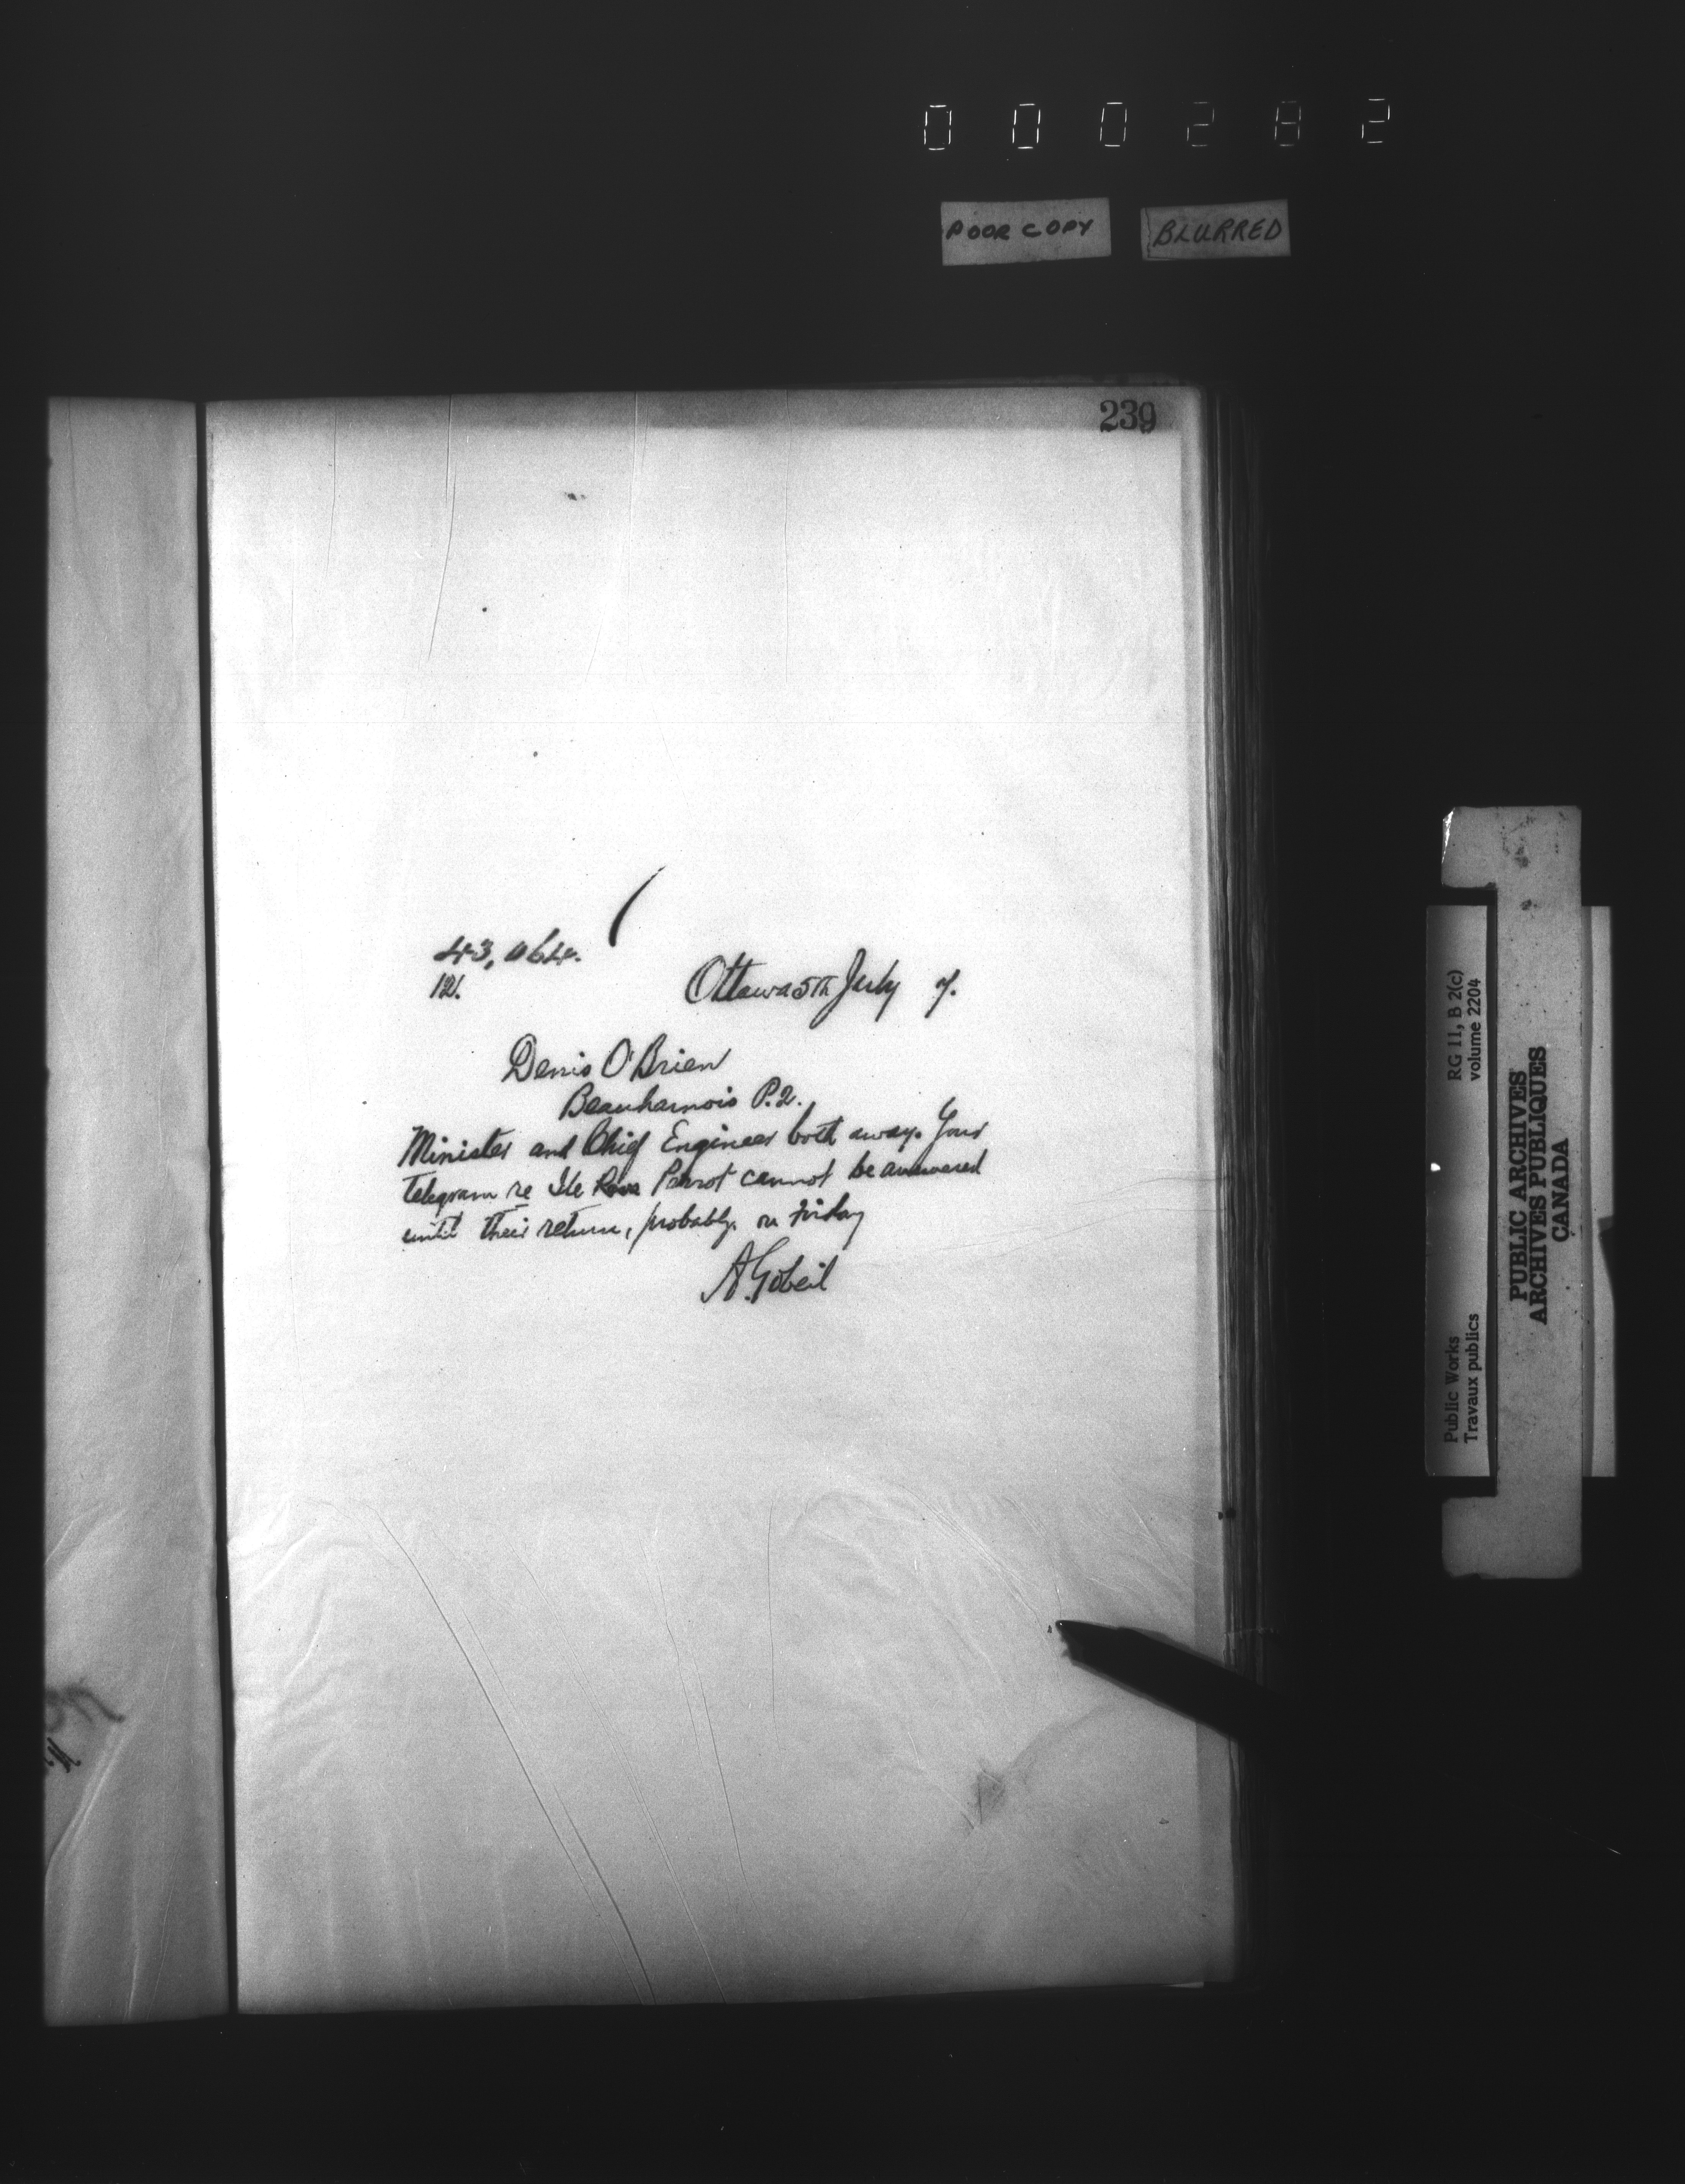 000282
POOR COPY
BLURRED
239
43,064.
121.
Ottawa 5th July 7.
Denis O'Brien
Beauharnois P.Q.
Minister and Chief Engineer both away. Your
telegram re Ile Perrot cannot be answered
until their return, probably on Friday
A. Gobeil
Public Works
Travaux publics
RG 11, B 2(c)
volume 2204
PUBLIC ARCHIVES
ARCHIVES PUBLIQUES
CANADA